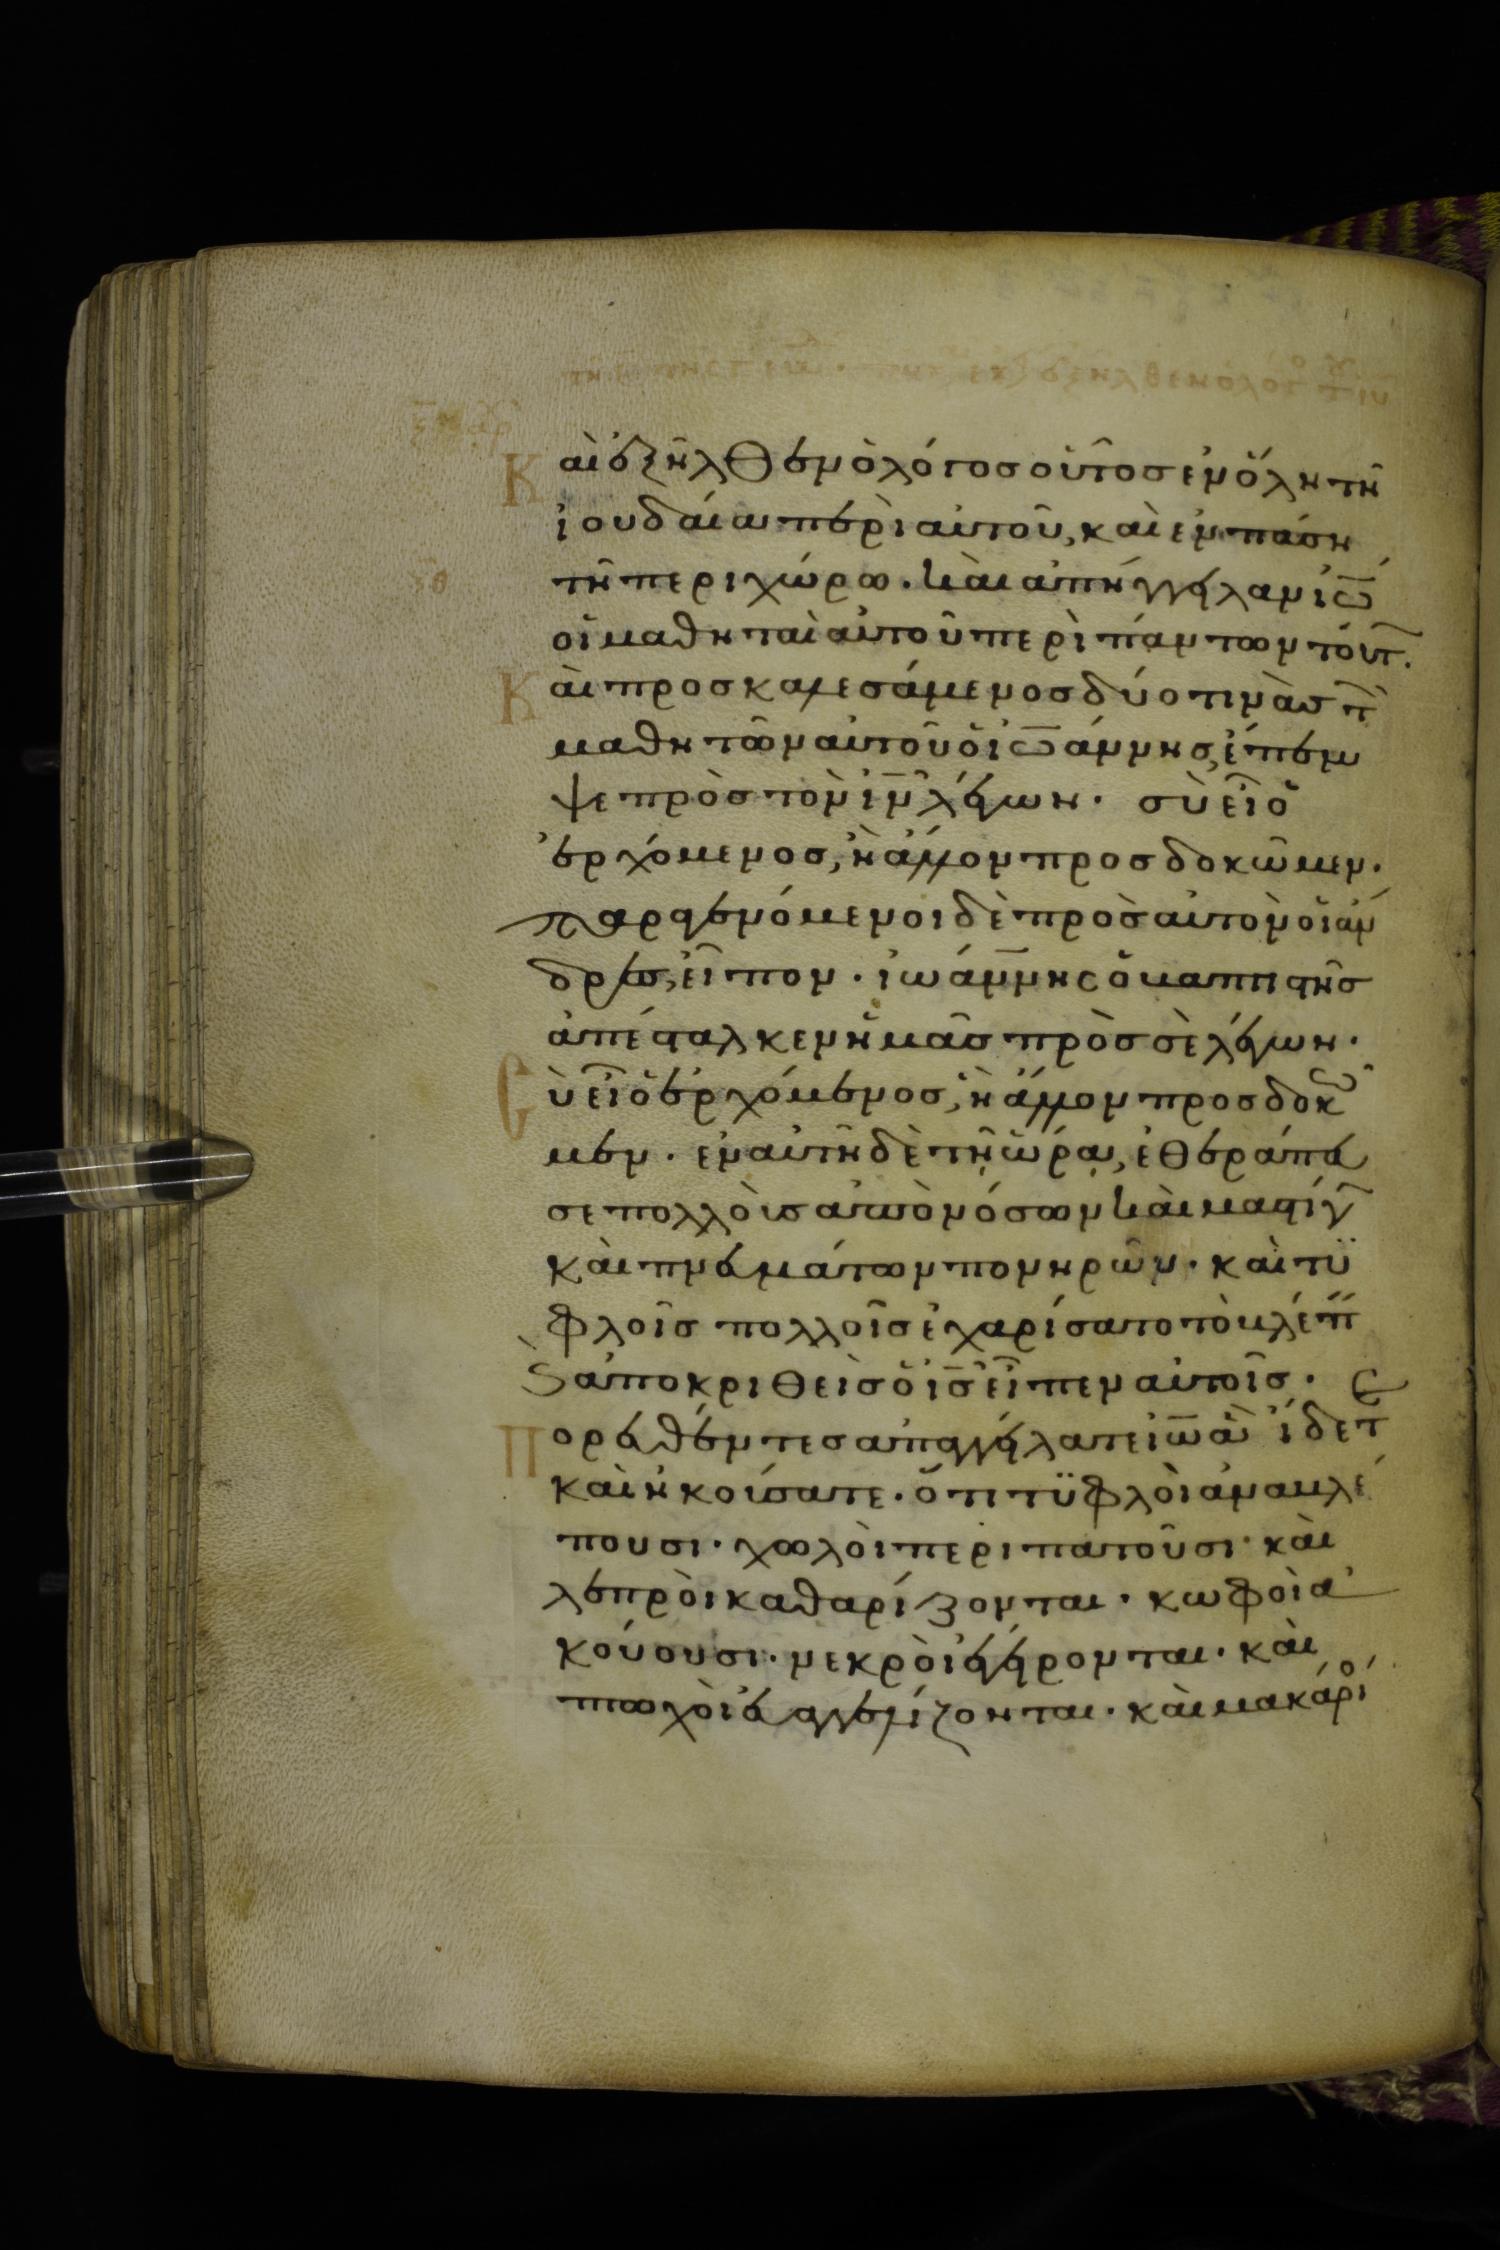 Και ἐξῆλθεν ὁ λόγος οὗτος ἐν ὅλη τῆ
ἰουδαία περὶ αὐτοῦ, καὶ ἐν πάση
τῆ περιχώρω. καὶ ἀπήγγειλαν ἰω̅
οἱ μαθηταὶ αὐτοῦ περὶ πάντων τούτ.
Καὶ προσκαλεσάμενος δύο τινὰς τ̅
μαθητῶν αὐτοῦ ὁ ἰω̅άννης, ἔπεμ
ψε πρὸς τὸν ι̅ν̅ λέγων. σὺ εἶ ὁ
ἐρχόμενος, ἢ ἄλλον προσδοκῶμεν.
παραγενόμενοι δὲ πρὸς αὐτὸν οἱ ἄν
δρες, εἶπον. ἰωάννης ὁ βαπτιστὴς
ἀπέσταλκεν ἡμᾶς πρὸς σὲ λέγων.
Σὺ εἶ ὁ ἐρχόμενος, ἢ ἄλλον προσδοκῶ
μεν. ἐν αὐτῆ δὲ τῆ ὥρα, ἐθεράπευ
σε πολλοὺς ἀπὸ νόσων καὶ μαστίγ
καὶ πνευμάτων πονηρῶν. καὶ τυ
φλοῖς πολλοῖς ἐχαρίσατο τὸ βλέπ
ϗ ἀποκριθεὶς ὁ ι̅ς̅ εἶπεν αὐτοῖς.
Πορευθέντες ἀπαγγείλατε ἰω̅ ἃ ἴδετ
καὶ ἠκούσατε. ὅτι τυφλοὶ ἀναβλέ
πουσι. χωλοὶ περιπατοῦσι. καὶ
λεπροὶ καθαρίζονται. κωφοὶ ἀ
κούουσι. νεκροὶ ἐγείρονται. καὶ
πτωχοὶ εὐαγγελίζονται. καὶ μακάριο